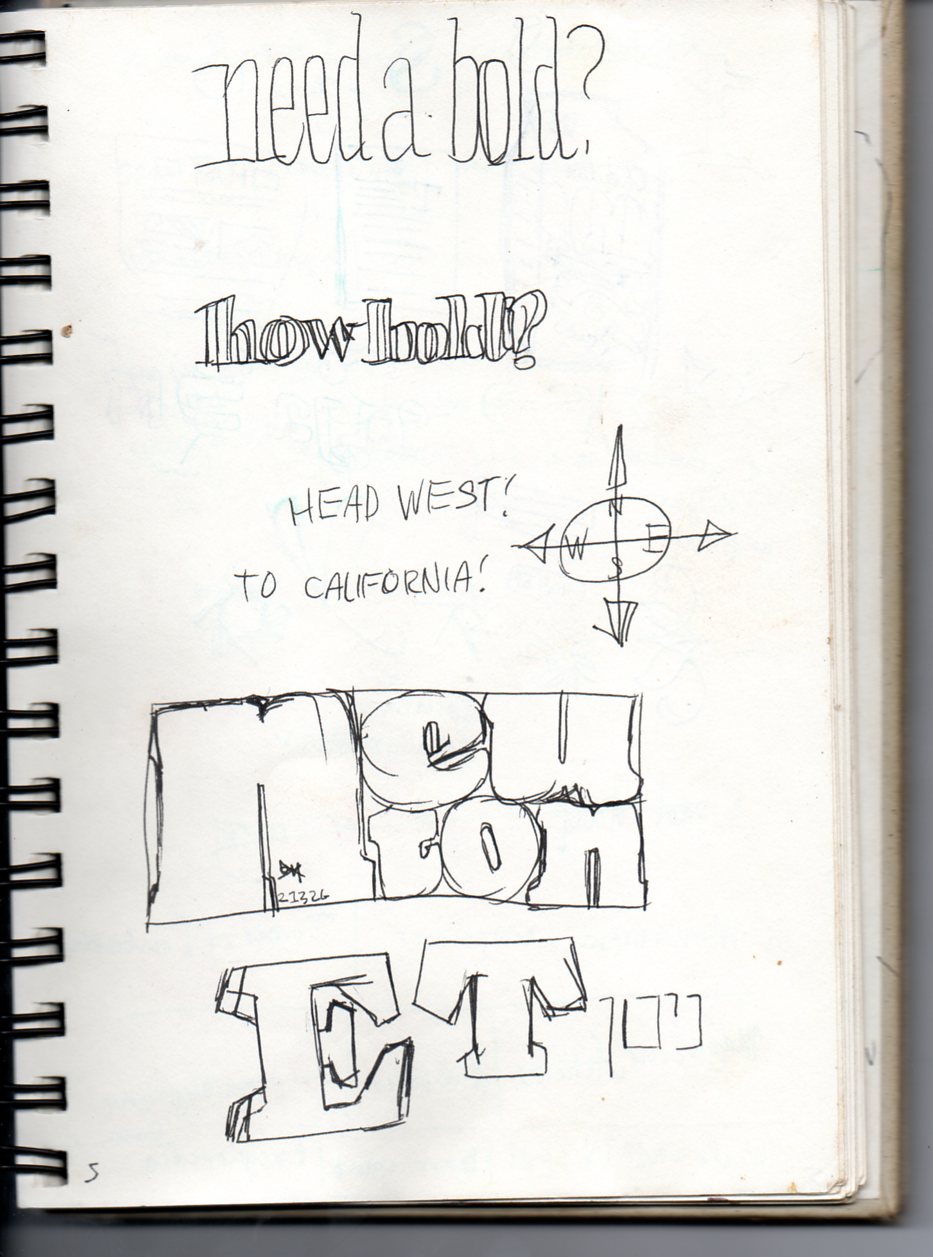 need a bold?
how bold!?
HEAD WEST!
TO CALIFORNIA!
N
W E
S
neu
ron
21326
ET
5